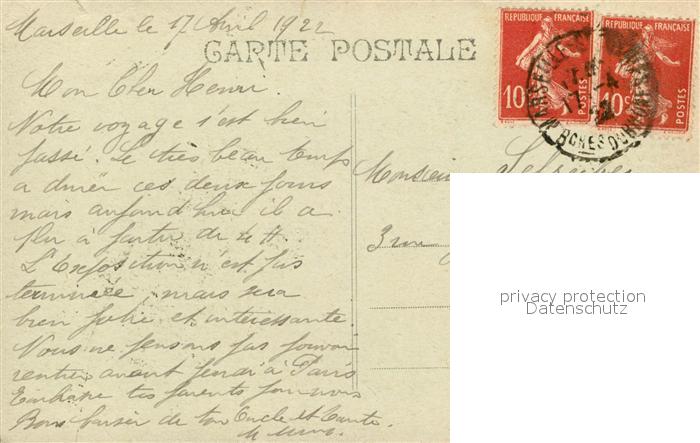 Marseille le 17 Avril 1922
CARTE POSTALE
REPUBLIQUE FRANÇAISE
10c POSTES
REPUBLIQUE FRANÇAISE
10c POSTES
MARSEILLE
17 -4
22
BCHES DU RH
Mon Cher Henri.
Notre voyage s'est bien
passé. Le très beau temps
a durer ces deux jours
mais aujourd'hui il a
plu à partir de 4 H.
L'Exposition n'est pas
terminée, mais sera
bien jolie et intéressante.
Nous ne pensons pas pouvoir
rentrer avant jeudi à Paris
Embrasse tes parents pour nous
Bons baisers de ton Oncle et Tante.
Monsieur
3 rue
privacy protection
Datenschutz